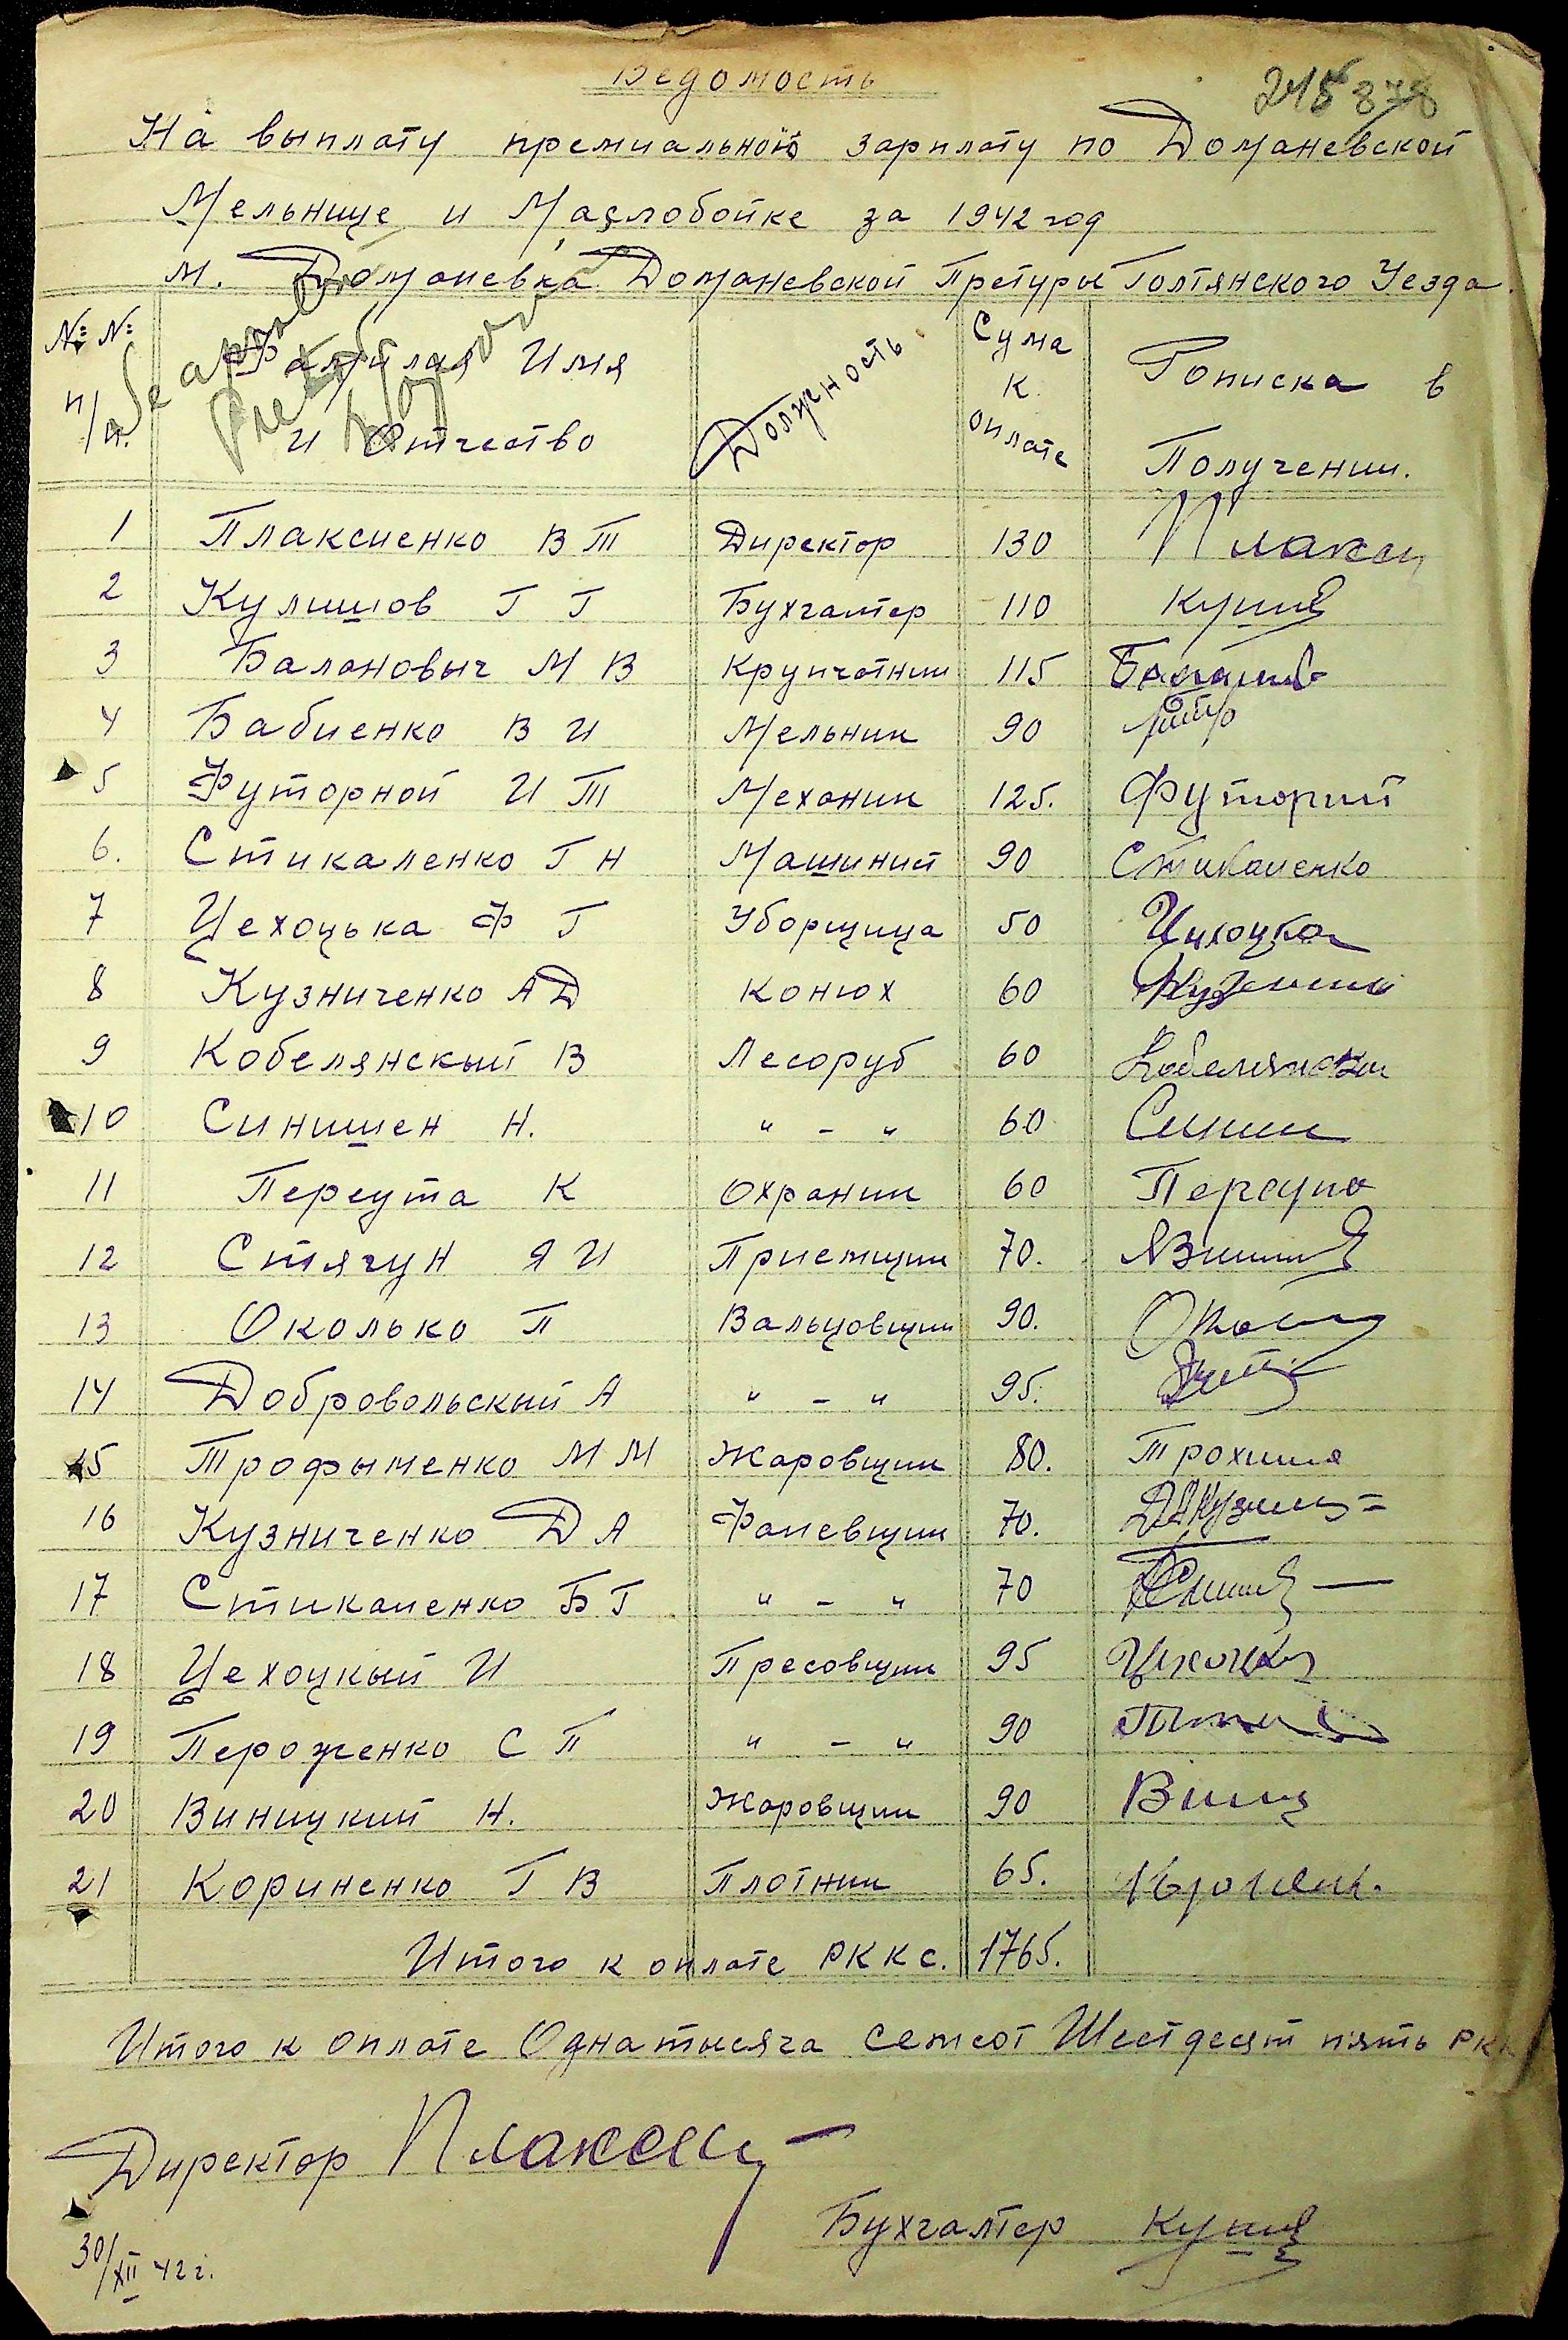 Ведомость
На выплату премиальной зарплату по Доманевской
Мельнице и Маслобойке за 1942 год
м. Доманевка Доманевской Претуры Голтянского Уезда.
№ № п/п. Фамилая Имя и Отчество Должность Сума к. оплате Рописка в Получении.
1 Плаксиенко В Т Директор 130 Плакси
2 Кулишов Г Г Бухгалтер 110
3 Балановыч М В Крупчатник 115
4 Бабиенко В И Мельник 90
5 Футорной И Т Механик 125. Футорний
6. Стикаленко Г Н Машинист 90 Стикаленко
7 Цехоцька Ф Г Уборщица 50 Цихоцка
8 Кузниченко А Д Конюх 60
9 Кобелянский В Лесоруб 60
10 Синишен Н. " - " 60
11 Переута К Охраник 60
12 Стягун Я И Приемщик 70.
13 Околько П Вальцовщик 90.
14 Добровольский А " - " 95.
15 Трофыменко М М Жаровщик 80.
16 Кузниченко Д А Фаневщик 70.
17 Стикаленко Б Г " - " 70
18 Цехоцкый И Пресовщик 95
19 Пероженко С П " - " 90
20 Виницкий Н. Жаровщик 90
21 Кориненко Г В Плотник 65.
Итого к оплате РККС. 1765.
Итого к оплате Одна тысяча семсот Шестдесят пять РКК
Директор Плакси
Бухгалтер
30/XII 42 г.